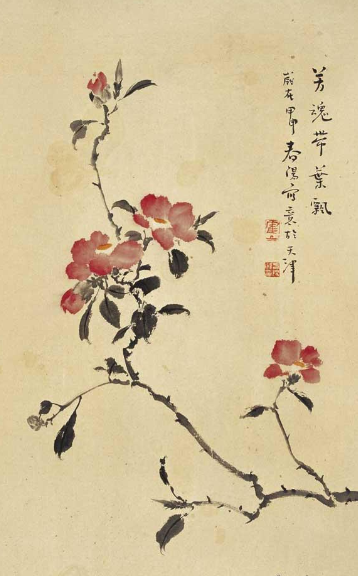 芳魂帶葉飄
歲在甲申春陽寫意於天津